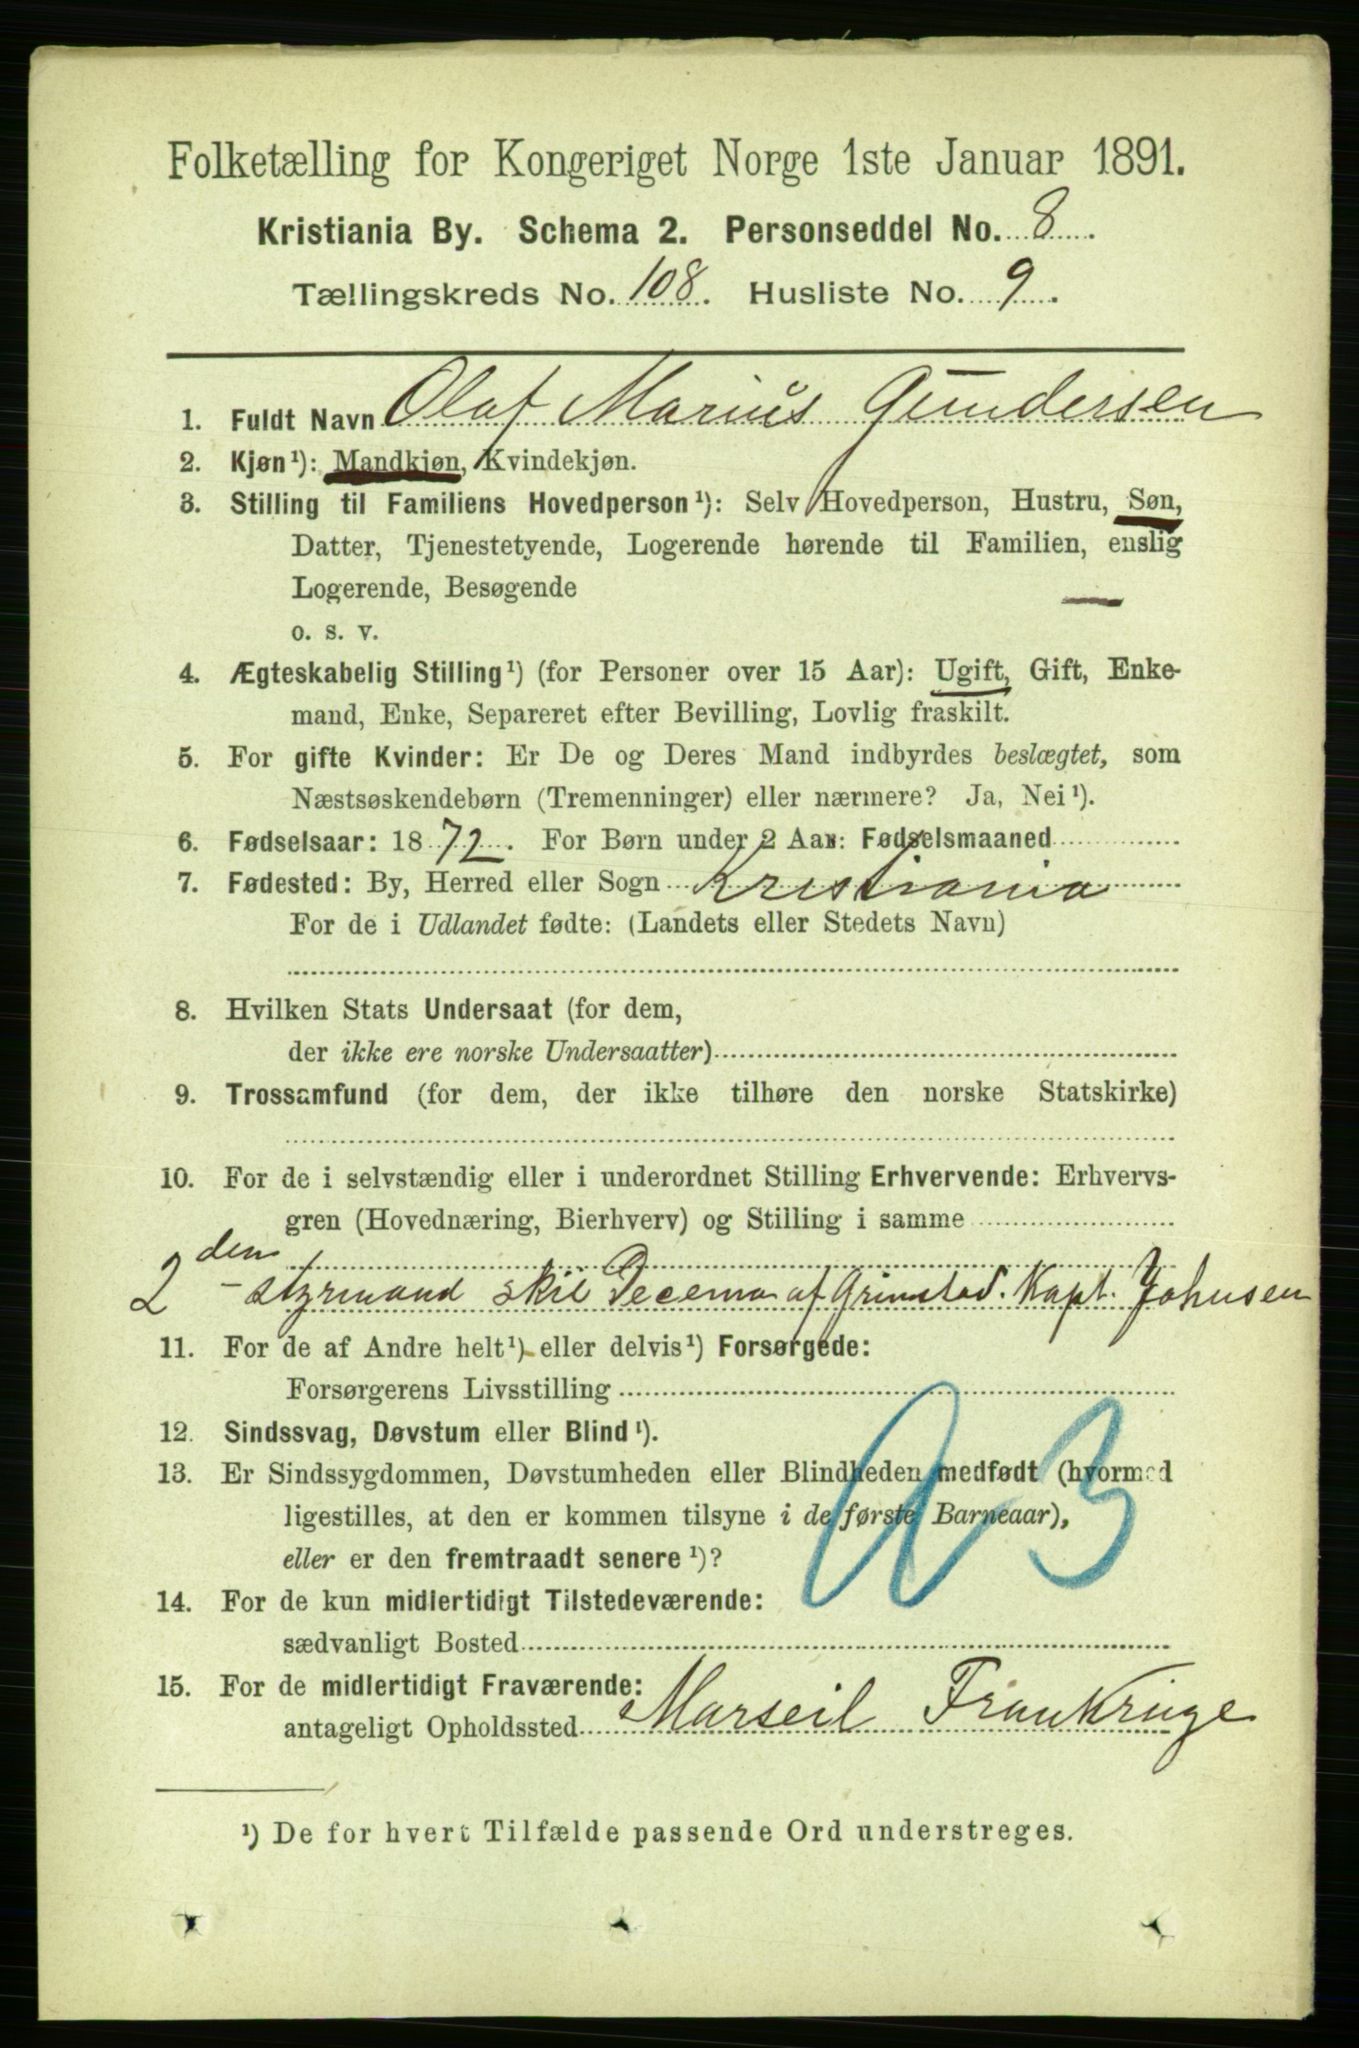 Folketælling for Kongeriget Norge 1ste Januar 1891.
Kristiania By. Schema 2. Personseddel No. 8.
Tællingskreds No. 108. Husliste No. 9.
1. Fuldt Navn Olaf Marius Gundersen
2. Kjøn¹): Mandkjøn, Kvindekjøn.
3. Stilling til Familiens Hovedperson¹): Selv Hovedperson, Hustru, Søn,
Datter, Tjenestetyende, Logerende hørende til Familien, enslig
Logerende, Besøgende
o. s. v.
4. Ægteskabelig Stilling¹) (for Personer over 15 Aar): Ugift, Gift, Enke-
mand, Enke, Separeret efter Bevilling, Lovlig fraskilt.
5. For gifte Kvinder: Er De og Deres Mand indbyrdes beslægtet, som
Næstsøskendebørn (Tremenninger) eller nærmere? Ja, Nei¹).
6. Fødselsaar: 1872. For Børn under 2 Aar: Fødselsmaaned
7. Fødested: By, Herred eller Sogn Kristiania
For de i Udlandet fødte: (Landets eller Stedets Navn)
8. Hvilken Stats Undersaat (for dem,
der ikke ere norske Undersaatter)
9. Trossamfund (for dem, der ikke tilhøre den norske Statskirke)
10. For de i selvstændig eller i underordnet Stilling Erhvervende: Erhvervs-
gren (Hovednæring, Bierhverv) og Stilling i samme
2den - styrmand skib Decema af Grimstad. Kapt. Johnsen
11. For de af Andre helt¹) eller delvis¹) Forsørgede:
Forsørgerens Livsstilling
12. Sindssvag, Døvstum eller Blind¹).
13. Er Sindssygdommen, Døvstumheden eller Blindheden medfødt (hvormed
ligestilles, at den er kommen tilsyne i de første Barneaar),
eller er den fremtraadt senere¹)?
14. For de kun midlertidigt Tilstedeværende:
sædvanligt Bosted
15. For de midlertidigt Fraværende:
antageligt Opholdssted Marseil Frankrige
¹) De for hvert Tilfælde passende Ord understreges.